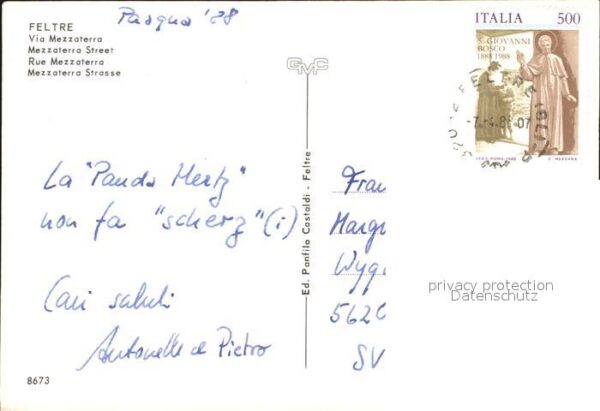 FELTRE
Via Mezzaterra
Mezzaterra Street
Rue Mezzaterra
Mezzaterra Strasse
Pasqua '88
GMC
ITALIA 500
S. GIOVANNI
BOSCO
1888 1988
I.P.Z.S. ROMA - 1988 C. MEZZANA
FELTRE
-7.-4.88-07
BELLUNO
La "Panda Hertz"
non fa "scherz"(i)
Cari saluti
Antonella e Pietro
Ed. Panfilo Castaldi - Feltre
Frau
Margr
Wyg
562
SV
privacy protection
Datenschutz
8673